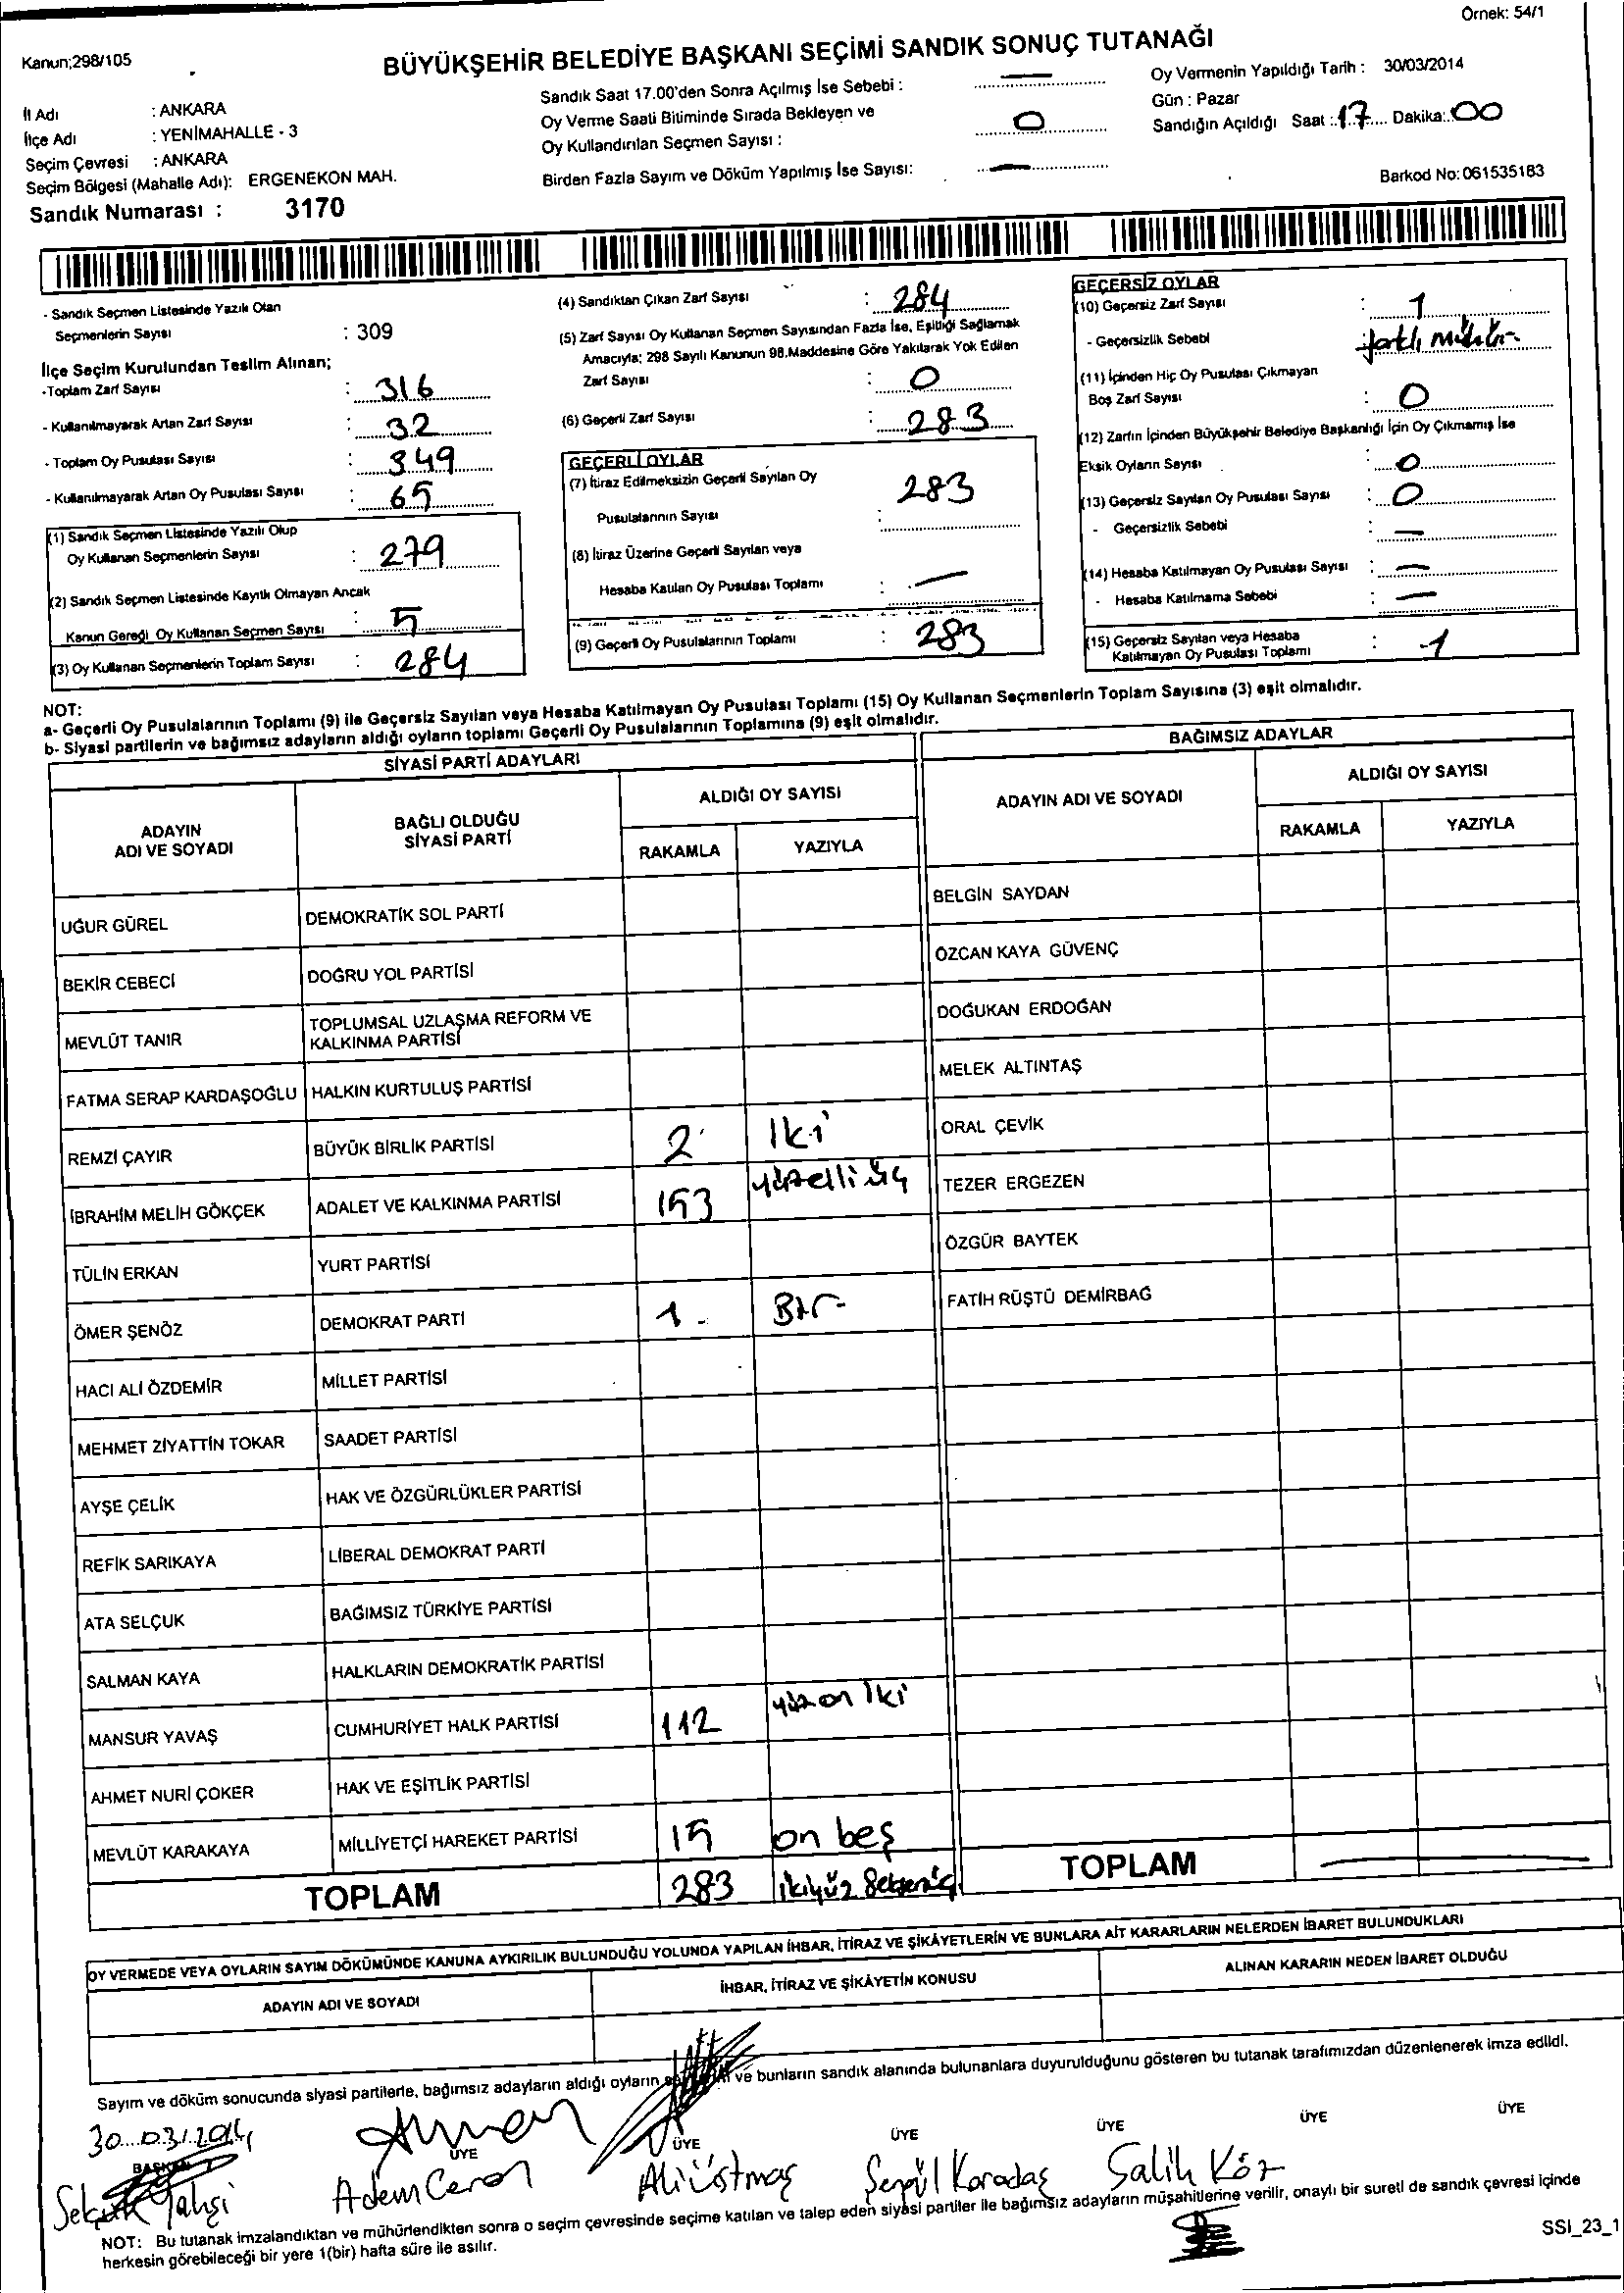 Örnek: 54/1
Kanun;298/105
BÜYÜKŞEHİR BELEDİYE BAŞKANI SEÇİMİ SANDIK SONUÇ TUTANAĞI
İl Adı : ANKARA
İlçe Adı : YENİMAHALLE - 3
Seçim Çevresi : ANKARA
Seçim Bölgesi (Mahalle Adı): ERGENEKON MAH.
Sandık Numarası : 3170
Sandık Saat 17.00'den Sonra Açılmış İse Sebebi : —
Oy Verme Saati Bitiminde Sırada Bekleyen ve
Oy Kullandırılan Seçmen Sayısı : 0
Birden Fazla Sayım ve Döküm Yapılmış İse Sayısı: —
Oy Vermenin Yapıldığı Tarih : 30/03/2014
Gün : Pazar
Sandığın Açıldığı Saat : 17 Dakika: 00
Barkod No: 061535183
- Sandık Seçmen Listesinde Yazılı Olan
Seçmenlerin Sayısı : 309
İlçe Seçim Kurulundan Teslim Alınan;
-Toplam Zarf Sayısı : 316
- Kullanılmayarak Artan Zarf Sayısı : 32
- Toplam Oy Pusulası Sayısı : 349
- Kullanılmayarak Artan Oy Pusulası Sayısı : 65
(1) Sandık Seçmen Listesinde Yazılı Olup
Oy Kullanan Seçmenlerin Sayısı : 279
(2) Sandık Seçmen Listesinde Kayıtlı Olmayan Ancak
Kanun Gereği Oy Kullanan Seçmen Sayısı : 5
(3) Oy Kullanan Seçmenlerin Toplam Sayısı : 284
(4) Sandıktan Çıkan Zarf Sayısı : 284
(5) Zarf Sayısı Oy Kullanan Seçmen Sayısından Fazla İse, Eşitliği Sağlamak
Amacıyla; 298 Sayılı Kanunun 98.Maddesine Göre Yakılarak Yok Edilen
Zarf Sayısı : 0
(6) Geçerli Zarf Sayısı : 283
GEÇERLİ OYLAR
(7) İtiraz Edilmeksizin Geçerli Sayılan Oy
Pusulalarının Sayısı : 283
(8) İtiraz Üzerine Geçerli Sayılan veya
Hesaba Katılan Oy Pusulası Toplamı : —
(9) Geçerli Oy Pusulalarının Toplamı : 283
GEÇERSİZ OYLAR
(10) Geçersiz Zarf Sayısı : 1
- Geçersizlik Sebebi : farklı mühür
(11) İçinden Hiç Oy Pusulası Çıkmayan
Boş Zarf Sayısı : 0
(12) Zarfın İçinden Büyükşehir Belediye Başkanlığı İçin Oy Çıkmamış İse
Eksik Oyların Sayısı : 0
(13) Geçersiz Sayılan Oy Pusulası Sayısı : 0
- Geçersizlik Sebebi : —
(14) Hesaba Katılmayan Oy Pusulası Sayısı : —
- Hesaba Katılmama Sebebi : —
(15) Geçersiz Sayılan veya Hesaba
Katılmayan Oy Pusulası Toplamı : 1
NOT:
a- Geçerli Oy Pusulalarının Toplamı (9) ile Geçersiz Sayılan veya Hesaba Katılmayan Oy Pusulası Toplamı (15) Oy Kullanan Seçmenlerin Toplam Sayısına (3) eşit olmalıdır.
b- Siyasi partilerin ve bağımsız adayların aldığı oyların toplamı Geçerli Oy Pusulalarının Toplamına (9) eşit olmalıdır.
SİYASİ PARTİ ADAYLARI
ADAYIN ADI VE SOYADI BAĞLI OLDUĞU SİYASİ PARTİ ALDIĞI OY SAYISI
RAKAMLA YAZIYLA
UĞUR GÜREL DEMOKRATİK SOL PARTİ
BEKİR CEBECİ DOĞRU YOL PARTİSİ
MEVLÜT TANIR TOPLUMSAL UZLAŞMA REFORM VE
KALKINMA PARTİSİ
FATMA SERAP KARDAŞOĞLU HALKIN KURTULUŞ PARTİSİ
REMZİ ÇAYIR BÜYÜK BİRLİK PARTİSİ 2 İki
İBRAHİM MELİH GÖKÇEK ADALET VE KALKINMA PARTİSİ 153 yüzelli üç
TÜLİN ERKAN YURT PARTİSİ
ÖMER ŞENÖZ DEMOKRAT PARTİ 1 - Bir -
HACI ALİ ÖZDEMİR MİLLET PARTİSİ
MEHMET ZİYATTİN TOKAR SAADET PARTİSİ
AYŞE ÇELİK HAK VE ÖZGÜRLÜKLER PARTİSİ
REFİK SARIKAYA LİBERAL DEMOKRAT PARTİ
ATA SELÇUK BAĞIMSIZ TÜRKİYE PARTİSİ
SALMAN KAYA HALKLARIN DEMOKRATİK PARTİSİ
MANSUR YAVAŞ CUMHURİYET HALK PARTİSİ 112 yüz on İki
AHMET NURİ ÇOKER HAK VE EŞİTLİK PARTİSİ
MEVLÜT KARAKAYA MİLLİYETÇİ HAREKET PARTİSİ 15 on beş
TOPLAM 283 ikiyüz Seksenüç
BAĞIMSIZ ADAYLAR
ADAYIN ADI VE SOYADI ALDIĞI OY SAYISI
RAKAMLA YAZIYLA
BELGİN SAYDAN
ÖZCAN KAYA GÜVENÇ
DOĞUKAN ERDOĞAN
MELEK ALTINTAŞ
ORAL ÇEVİK
TEZER ERGEZEN
ÖZGÜR BAYTEK
FATİH RÜŞTÜ DEMİRBAĞ
TOPLAM —
OY VERMEDE VEYA OYLARIN SAYIM DÖKÜMÜNDE KANUNA AYKIRILIK BULUNDUĞU YOLUNDA YAPILAN İHBAR, İTİRAZ VE ŞİKÂYETLERİN VE BUNLARA AİT KARARLARIN NELERDEN İBARET BULUNDUKLARI
ADAYIN ADI VE SOYADI İHBAR, İTİRAZ VE ŞİKÂYETİN KONUSU ALINAN KARARIN NEDEN İBARET OLDUĞU
Sayım ve döküm sonucunda siyasi partilerle, bağımsız adayların aldığı oyların ve bunların sandık alanında bulunanlara duyurulduğunu gösteren bu tutanak tarafımızdan düzenlenerek imza edildi.
30 03/2014
BAŞKAN ÜYE ÜYE ÜYE ÜYE ÜYE ÜYE
Selçuk Yahşi Adem Ceran Ali Üstmaş Serpil Karadaş Salih Köz
NOT: Bu tutanak imzalandıktan ve mühürlendikten sonra o seçim çevresinde seçime katılan ve talep eden siyasi partiler ile bağımsız adayların müşahitlerine verilir, onaylı bir sureti de sandık çevresi içinde
herkesin görebileceği bir yere 1(bir) hafta süre ile asılır.
SSI_23_1